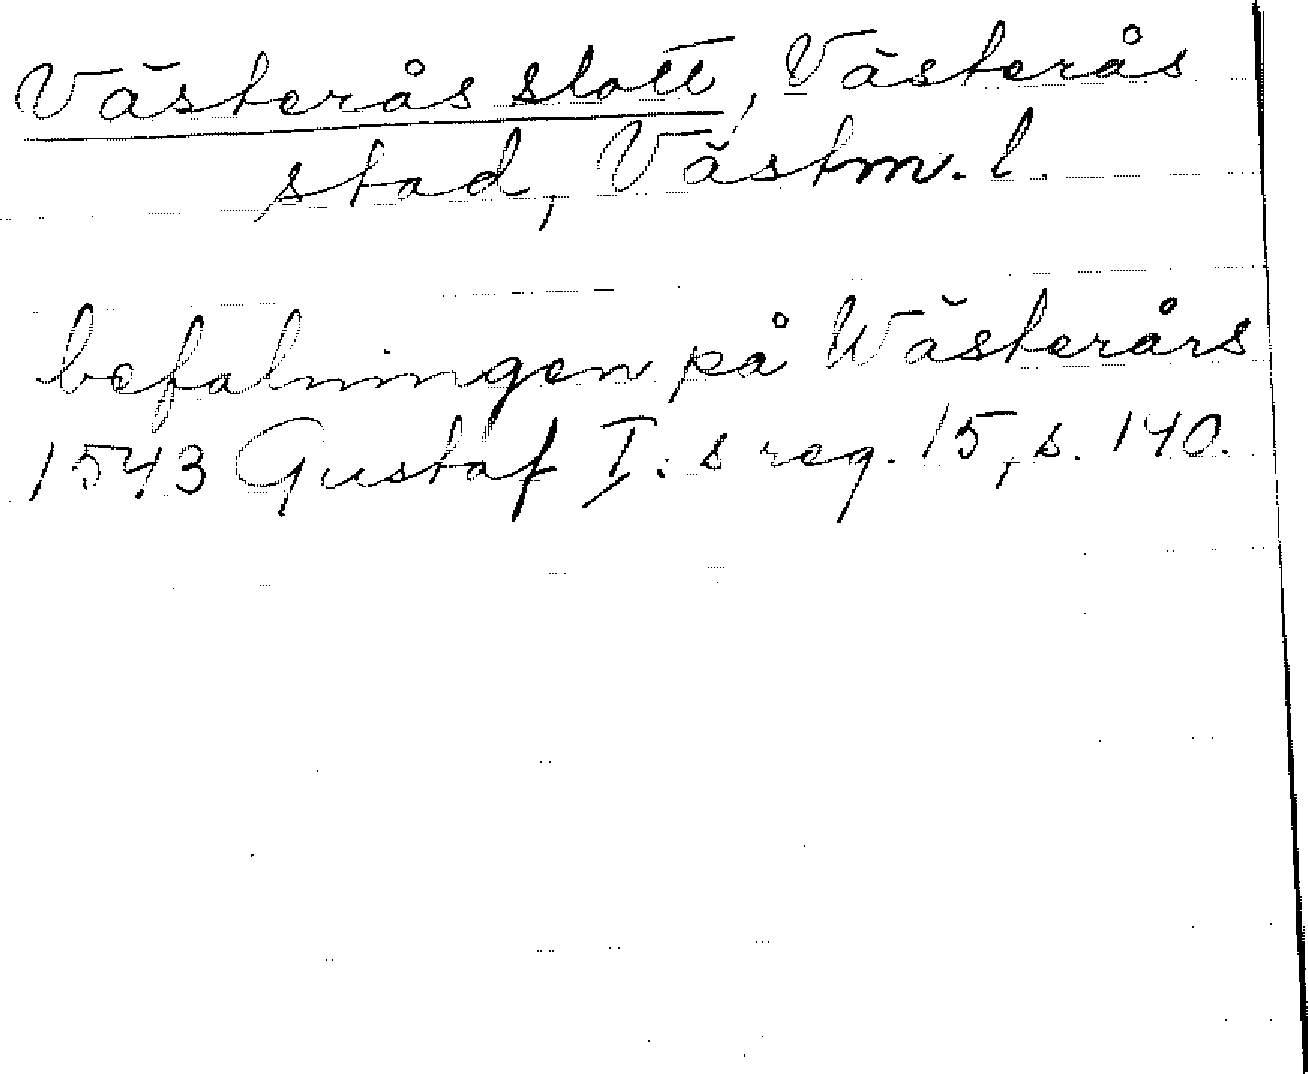 Västerås slott, Västerås
stad, Västm. l.
befalningen på Wästerårs
1543 Gustaf I:s reg. 15, s. 140.